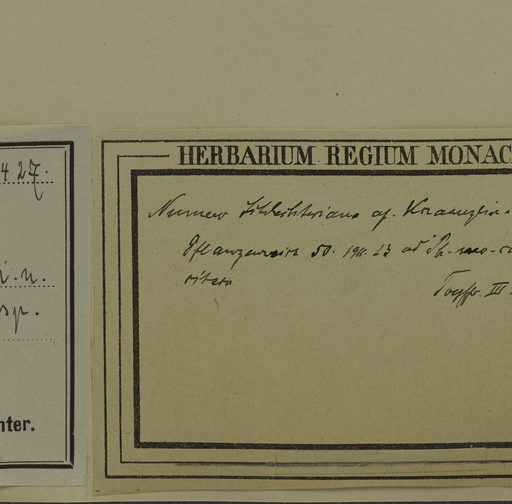 427.
i. n.
sp.
nter.
HERBARIUM REGIUM MONAC
Numero Schlechteriano ap. Kraenzlin
Pflanzenreich 50. 1911. 23 ad Ph.
citato
III.